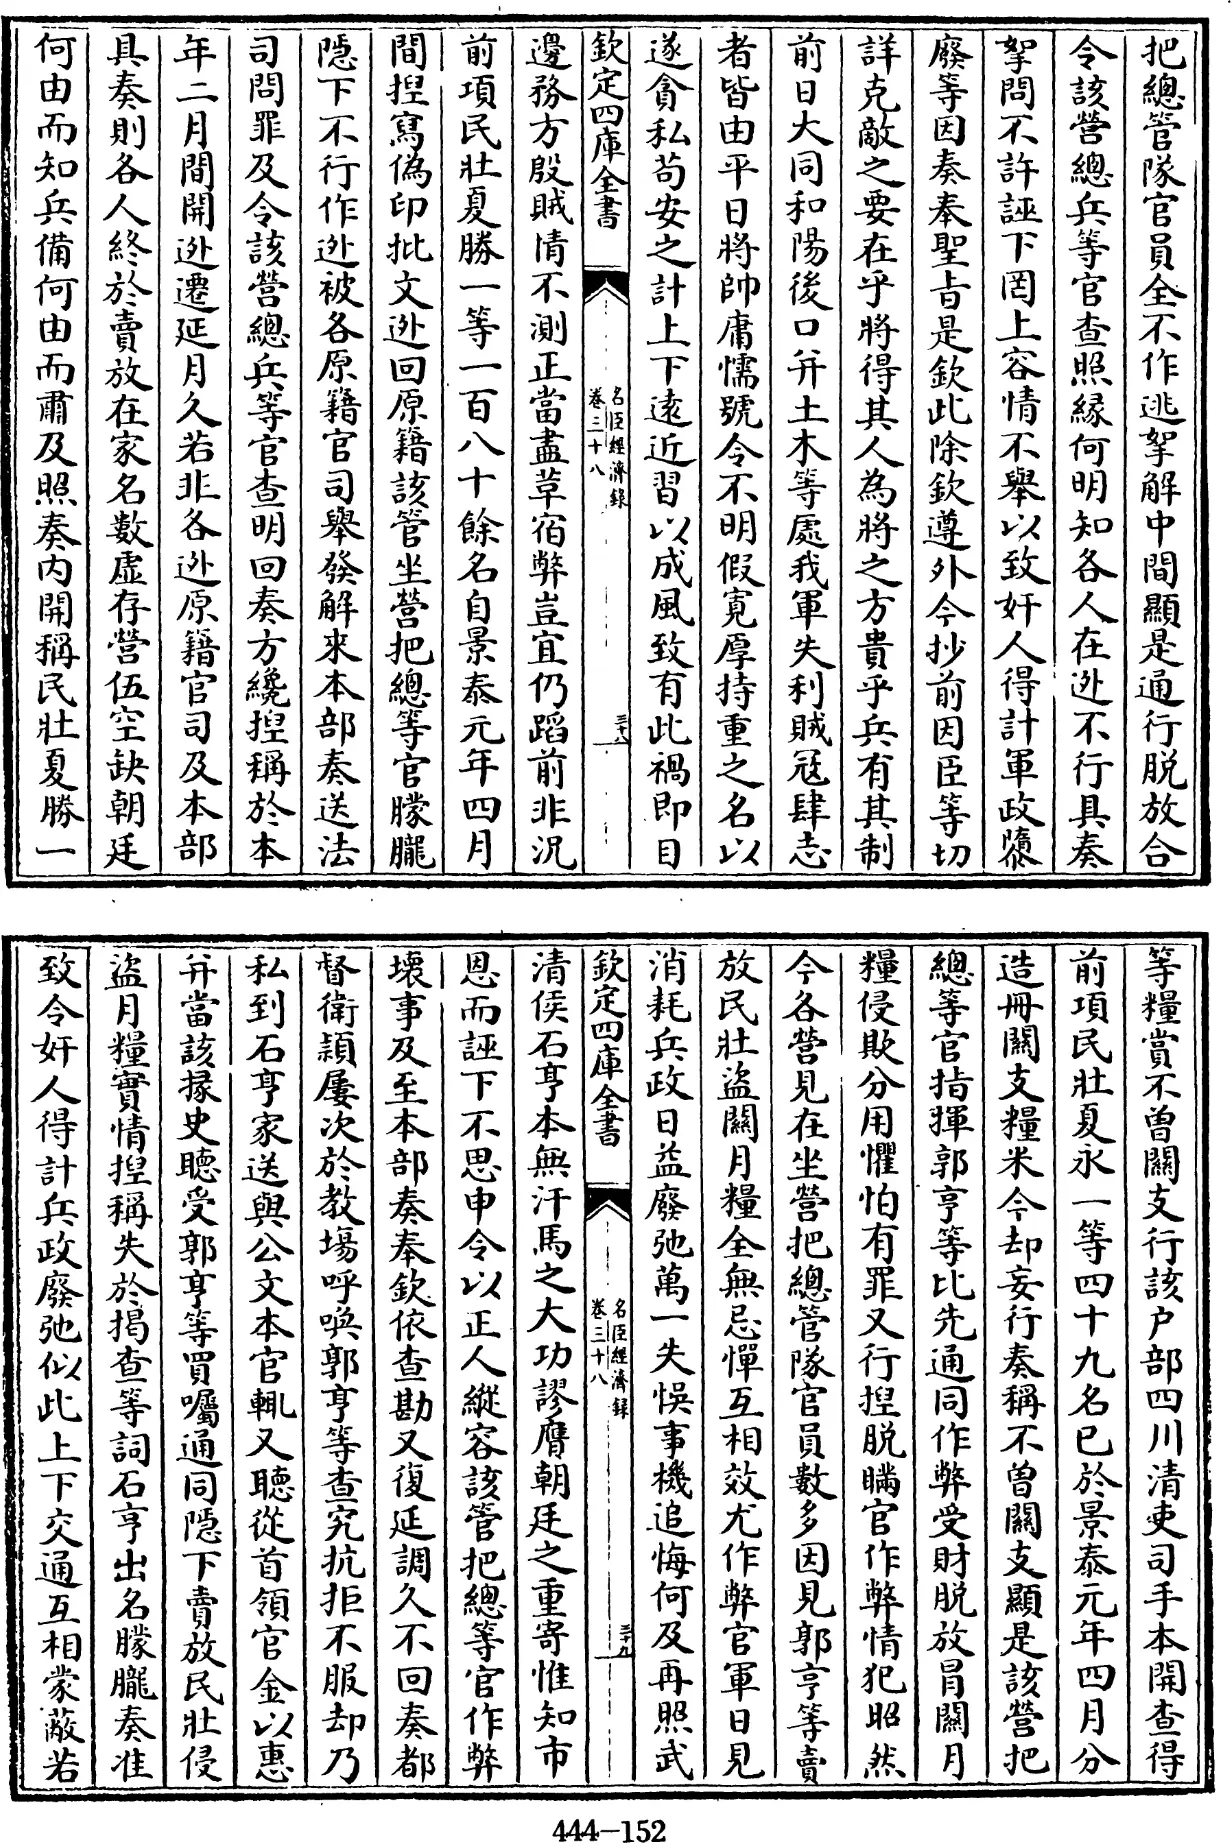 把總管隊官員全不作逃挐解中間顯是通行脱放合
令該營總兵等官查照緣何明知各人在逃不行具奏
挐問不許誣下罔上容情不舉以致奸人得計軍政隳
廢等因奏奉聖旨是欽此除欽遵外今抄前因臣等切
詳克敵之要在乎將得其人為將之方貴乎兵有其制
前日大同和陽後口并土木等處我軍失利賊冦肆志
者皆由平日將帥庸懦號令不明假寛厚持重之名以
遂貪私苟安之計上下遠近習以成風致有此禍即目
欽定四庫全書
名臣經濟錄
卷三十八
三十八
邊務方殷賊情不測正當盡革宿弊豈宜仍蹈前非況
前項民壯夏勝一等一百八十餘名自景泰元年四月
間揑寫偽印批文逃回原籍該管坐營把總等官朦朧
隱下不行作逃被各原籍官司舉發解來本部奏送法
司問罪及令該營總兵等官查明回奏方纔揑稱於本
年二月間開逃遷延月久若非各逃原籍官司及本部
具奏則各人終於賣放在家名數虛存營伍空缺朝廷
何由而知兵備何由而肅及照奏内開稱民壯夏勝一
等糧賞不曾關支行該户部四川清吏司手本開查得
前項民壯夏永一等四十九名已於景泰元年四月分
造冊關支糧米今却妄行奏稱不曾關支顯是該營把
總等官指揮郭亨等比先通同作弊受財脱放冐關月
糧侵欺分用懼怕有罪又行揑脱瞞官作弊情犯昭然
今各營見在坐營把總管隊官員數多因見郭亨等賣
放民壯盜關月糧全無忌憚互相效尤作弊官軍日見
消耗兵政日益廢弛萬一失悞事機追悔何及再照武
欽定四庫全書
名臣經濟錄
卷三十八
三十九
清侯石亨本無汗馬之大功謬膺朝廷之重寄惟知市
恩而誣下不思申令以正人縱容該管把總等官作弊
壊事及至本部奏奉欽依查勘又復延調久不回奏都
督衛頴屢次於教塲呼喚郭亨等查究抗拒不服却乃
私到石亨家送與公文本官輒又聽從首領官金以惠
并當該掾史聽受郭亨等買囑通同隱下賣放民壯侵
盜月糧實情揑稱失於揭查等詞石亨出名朦朧奏准
致令奸人得計兵政廢弛似此上下交通互相蒙蔽若
444-152